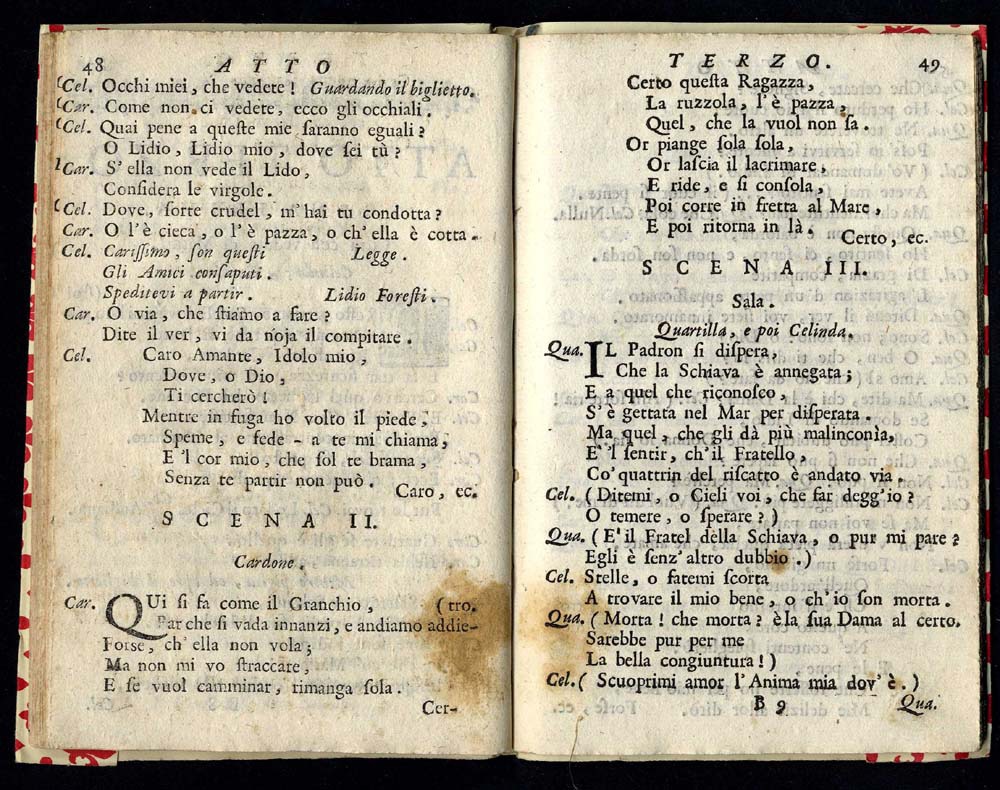 48 ATTO
(Cel. Occhi miei, che vedete! Guardando il biglietto.
(Car. Come non ci vedete, ecco gli occhiali.
(Cel. Quai pene a queſte mie ſaranno eguali?
O Lidio, Lidio mio, dove ſei tù?
(Car. S'ella non vede il Lido,
Conſidera le virgole.
(Cel. Dove, ſorte crudel, m'hai tu condotta?
Car. O l'è cieca, o l'è pazza, o ch'ella è cotta.
Cel. Cariſſimo, ſon queſti Legge.
Gli Amici conſaputi.
Speditevi a partir. Lidio Foreſti.
Car. O via, che ſtiamo a fare?
Dite il ver, vi da noja il compitare.
Cel. Caro Amante, Idolo mio,
Dove, o Dio,
Ti cercherò!
Mentre in fuga ho volto il piede,
Speme, e fede - a te mi chiama,
E 'l cor mio, che ſol te brama,
Senza te partir non può.
Caro, ec.
SCENA II.
Cardone.
Car. QUi ſi fa come il Granchio, (tro.
Par che ſi vada innanzi, e andiamo addie-
Forse, ch'ella non vola;
Ma non mi vo ſtraccare,
E ſe vuol camminar, rimanga ſola.
Cer-
TERZO. 49
Certo queſta Ragazza,
La ruzzola, l'è pazza,
Quel, che la vuol non ſa.
Or piange ſola ſola,
Or laſcia il lacrimare,
E ride, e ſi conſola,
Poi corre in fretta al Mare,
E poi ritorna in là.
Certo, ec.
SCENA III.
Sala.
Quartilla, e poi Celinda.
Qua. IL Padron ſi diſpera,
Che la Schiava è annegata;
E a quel che riconoſco,
S'è gettata nel Mar per diſperata.
Ma quel, che gli dà più malinconìa,
E' l ſentir, ch'il Fratello,
Co' quattrin del riſcatto è andato via.
Cel. (Ditemi, o Cieli voi, che far degg'io?
O temere, o ſperare?)
Qua. (E' il Fratel della Schiava, o pur mi pare?
Egli è ſenz'altro dubbio.)
Cel. Stelle, o fatemi ſcorta
A trovare il mio bene, o ch'io ſon morta.
Qua. (Morta! che morta? è la ſua Dama al certo.
Sarebbe pur per me
La bella congiuntura!)
Cel. (Scuoprimi amor l'Anima mia dov'è.)
B 9 Qua.